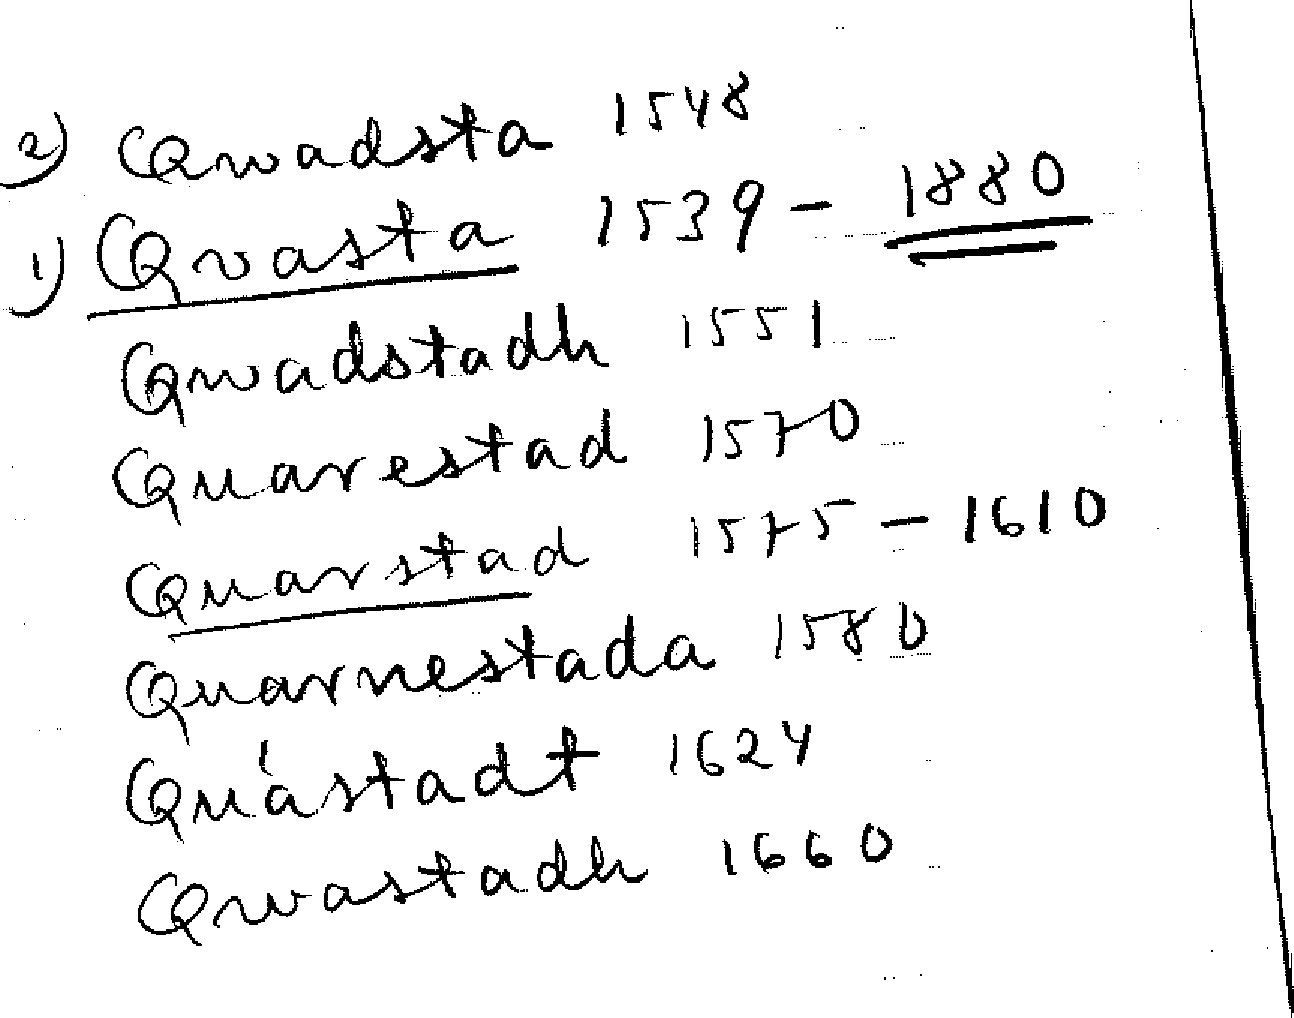 2) Qwadsta 1548
1) Qvasta 1539 - 1880
Qwadstadh 1551
Quarestad 1570
Quarstad 1575 - 1610
Quarnestada 1580
Quástadt 1624
Qwastadh 1660